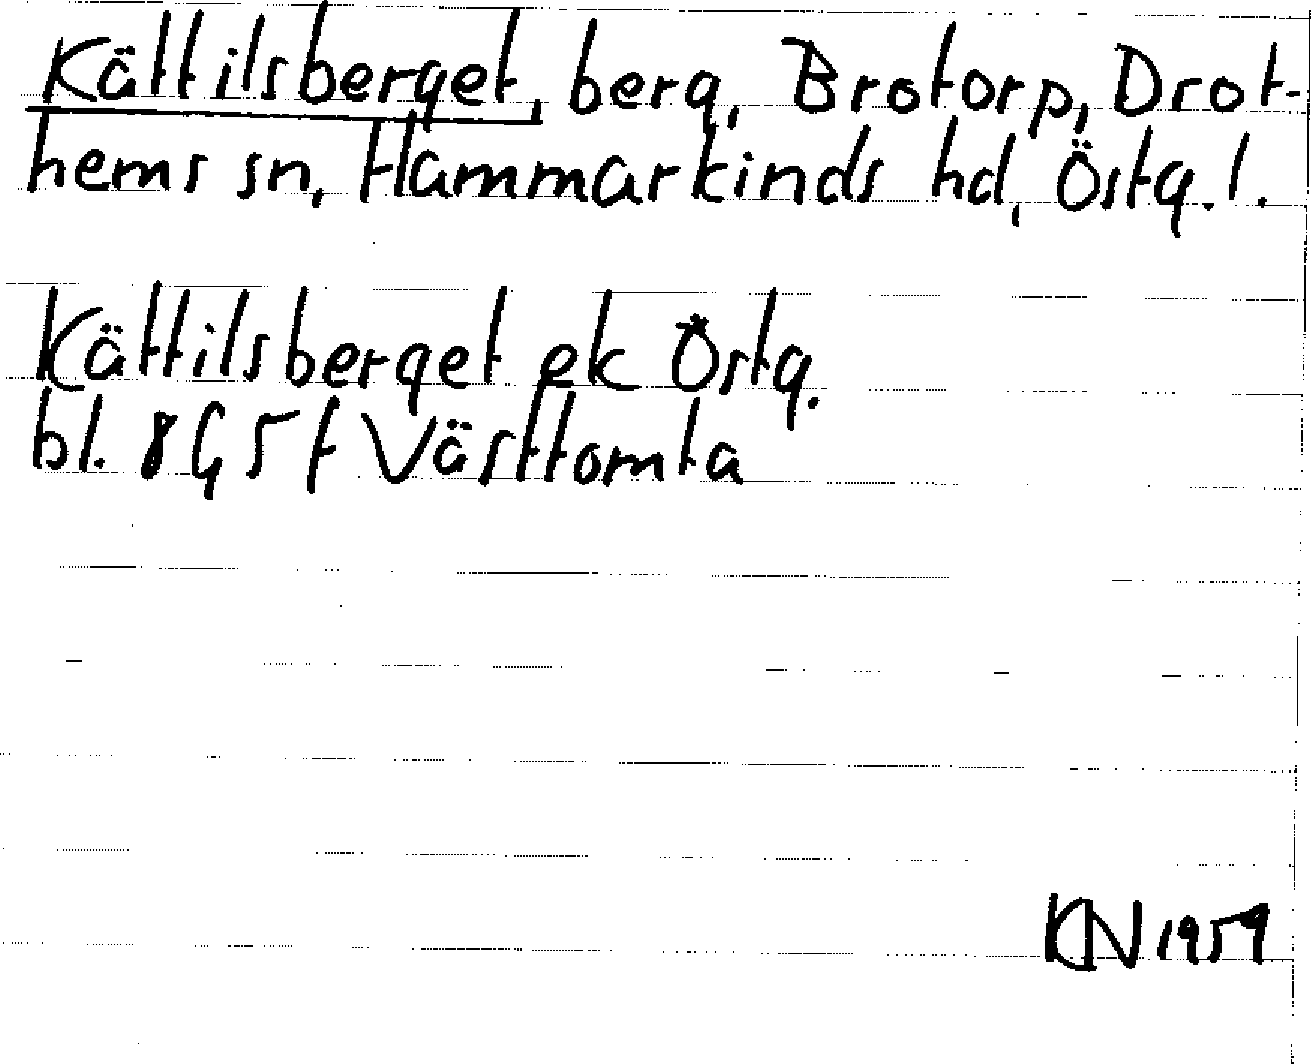 Kättilsberget, berg, Brotorp, Drot-
hems sn, Hammarkinds hd, Östg. l.
Kättilsberget ek Östg.
bl. 8G5f Västtomta
KN 1959